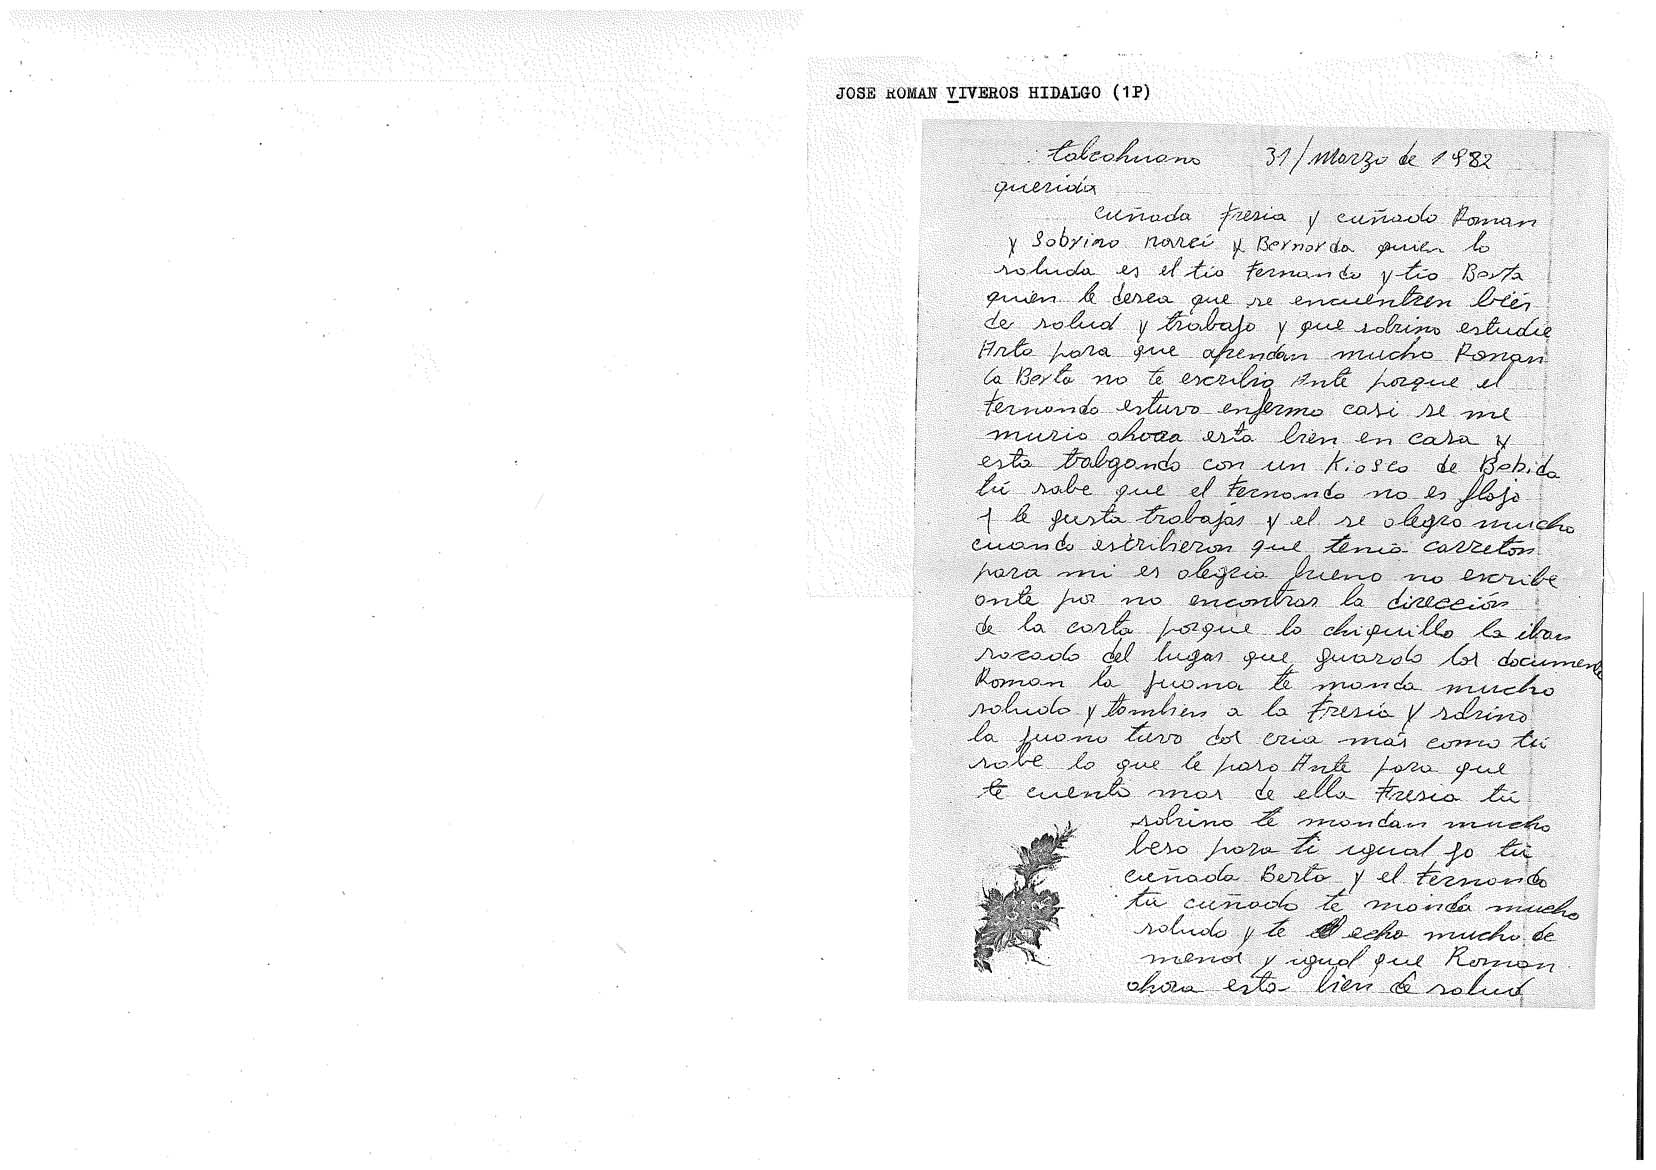 JOSE ROMAN VIVEROS HIDALGO (1P)
talcahuano 31/Marzo de 1982
querida
cuñada Fresia y cuñado Roman
y Sobrino y Bernarda quien lo
saluda es el tio Fernando y tio Berta
quien le desea que se encuentren bien
de salud y trabajo y que sobrino estudie
Arto para que apendan mucho Roman
la Berta no te escribio Ante porque el
Fernando estuvo enfermo casi se me
murio ahora esta bien en casa y
esta con un Kiosco de Bebida
tú sabe que el Fernando no es flojo
y le gusta trabajar y el se alegro mucho
cuando escribieron que tenia carreton
para mi es alegria bueno no escribe
ante por no encontrar la dirección
de la carta porque lo chiquillo la iban
sacado del lugar que guardo los
Roman la juana te manda mucho
saludo y tambien a la Fresia y sobrino
la juana tuvo dos cria mas como tú
sabe lo que le paso Ante para que
te cuento mas de ella Fresia tú
sobrino te mandan mucho
beso para ti igual yo tu
cuñada Berta y el Fernando
tu cuñado te manda mucho
saludo y te echo mucho de
menos y igual que Roman
ahora esta bien de salud